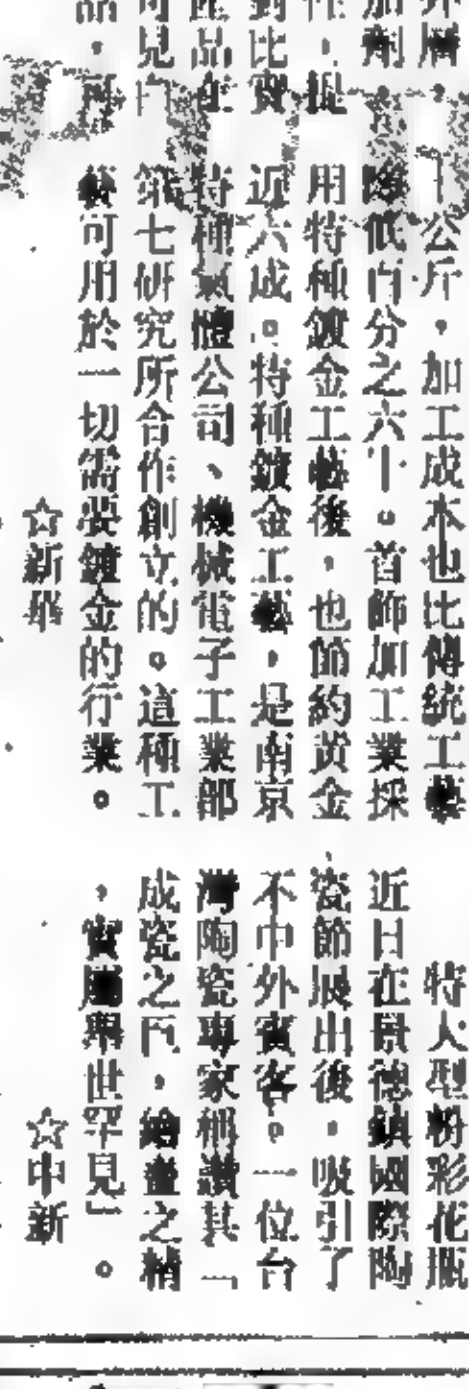 公斤，加工成本也比傳統工藝
降低百分之六十。首飾加工業採
用特種鍍金工藝後，也節約黃金
近六成。特種鍍金工藝，是南京
特種氣體公司、機械電子工業部
第七研究所合作創立的。這種工
藝可用於一切需要鍍金的行業。
☆新華
特大型粉彩花瓶
近日在景德鎮國際陶
瓷節展出後，吸引了
不中外賓客。一位台
灣陶瓷專家稱讚其「
成瓷之巨，繪畫之精
，實屬舉世罕見」。
☆中新